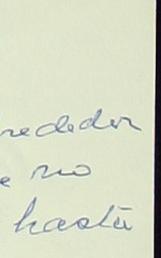 rededor
e no
hasta